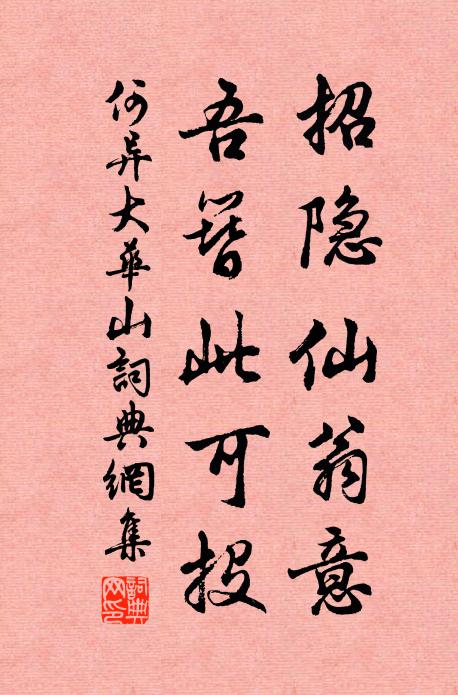 招隐仙翁意
吾簪此可投
何异大華山詞典網集
詞典网印